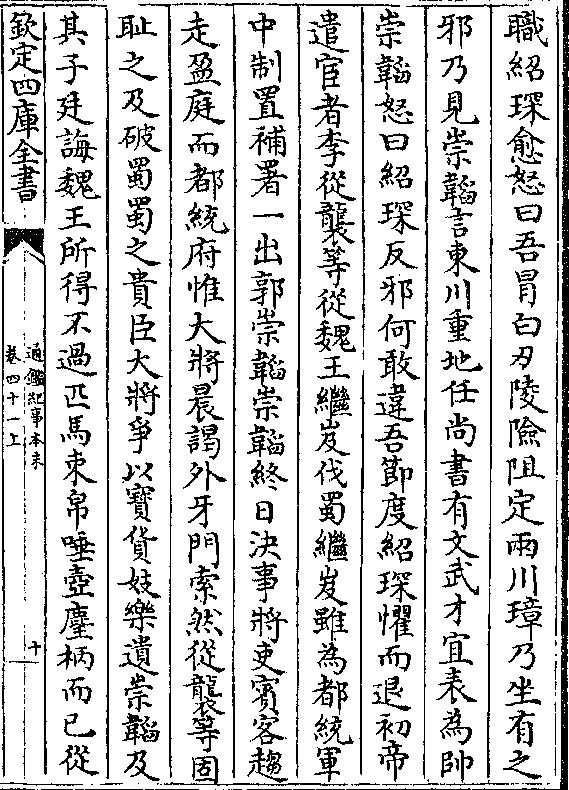 職紹琛愈怒曰吾冒白刃陵險阻定兩川璋乃坐有之
邪乃見崇韜言東川重地任尚書有文武才宜表為帥
崇韜怒曰紹琛反邪何敢違吾節度紹琛懼而退初帝
遣宦者李從襲等從魏王繼岌伐蜀繼岌雖為都統軍
中制置補署一出郭崇韜崇韜終日決事將吏賓客趨
走盈庭而都統府惟大將晨謁外牙門索然從襲等固
恥之及破蜀蜀之貴臣大將爭以寶貨妓樂遺崇韜及
其子廷誨魏王所得不過匹馬束帛唾壺麈柄而已從
欽定四庫全書
通鑑紀事本末
卷四十一上
十